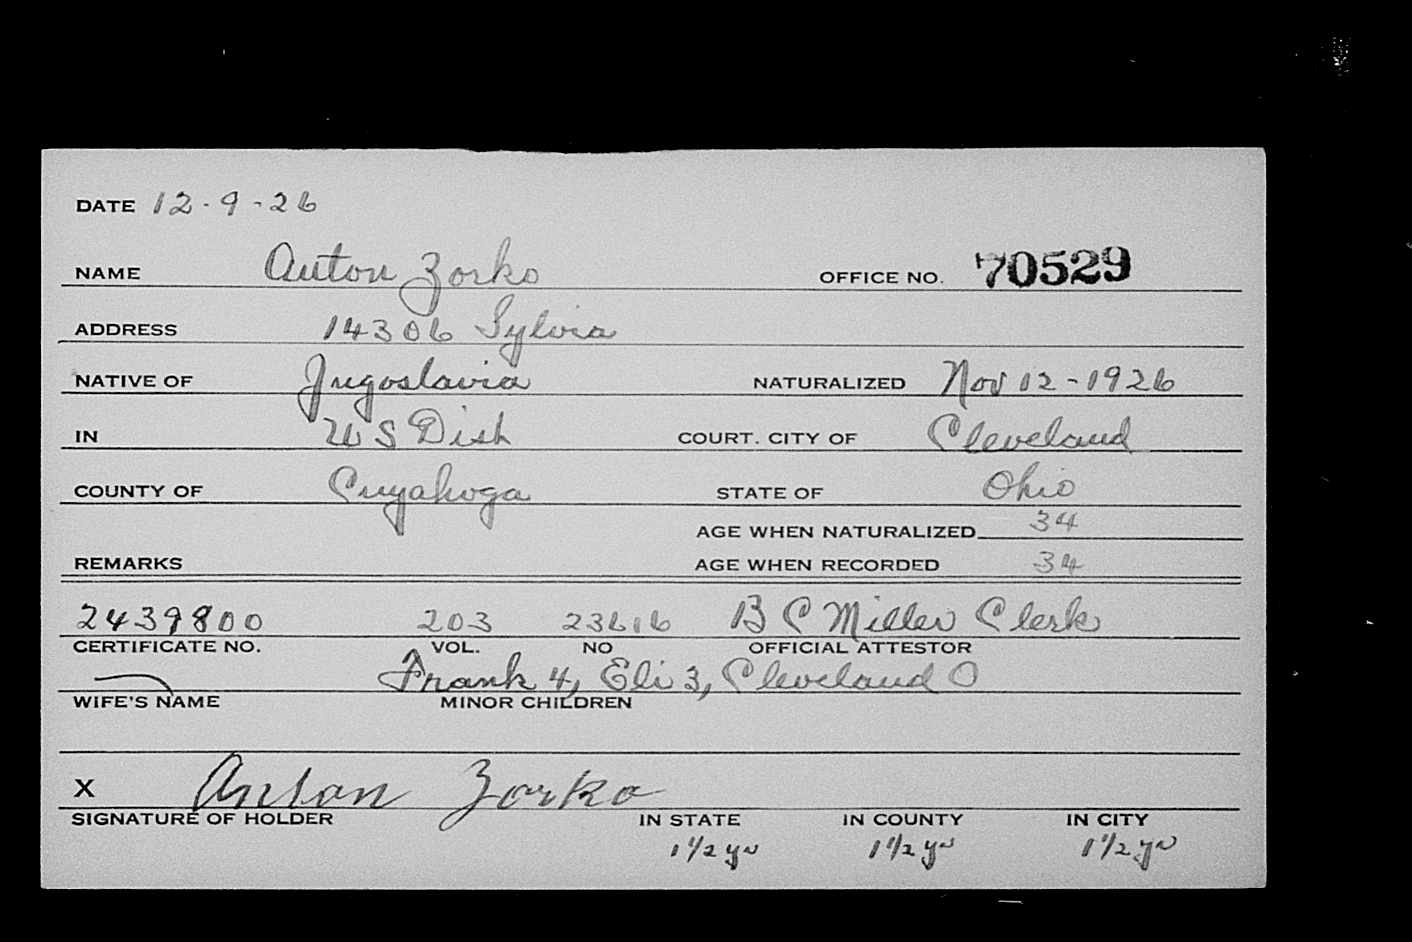 DATE 12-9-26
NAME Anton Zorko OFFICE NO. 70529
ADDRESS 14306 Sylvia
NATIVE OF Jugoslavia NATURALIZED Nov 12-1926
IN US Dist COURT. CITY OF Cleveland
COUNTY OF Cuyahoga STATE OF Ohio
AGE WHEN NATURALIZED 34
REMARKS AGE WHEN RECORDED 34
2439800 203 23616 B C Miller Clerk
CERTIFICATE NO. VOL. NO OFFICIAL ATTESTOR
Frank 4, Eli 3, Cleveland O
WIFE'S NAME MINOR CHILDREN
X Anton Zorko
SIGNATURE OF HOLDER IN STATE IN COUNTY IN CITY
1 1/2 yr 1 1/2 yr 1 1/2 yr